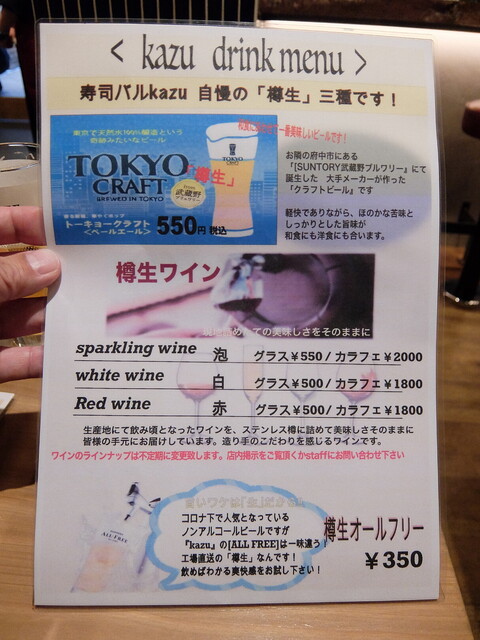 < kazu drink menu >
寿司バルkazu 自慢の「樽生」三種です！
東京で天然水100%醸造という
奇跡みたいなビール
TOKYO
CRAFT
BREWED IN TOKYO
「樽生」
from
武蔵野
ブルワリー
TOKYO
CRAFT
トーキョークラフト
<ペールエール>
550円 税込
一番美味しいビールです！
お隣の府中市にある
「[SUNTORY武蔵野ブルワリー」にて
誕生した 大手メーカーが作った
「クラフトビール」です
軽快でありながら、ほのかな苦味と
しっかりとした旨味が
和食にも洋食にも合います。
樽生ワイン
現地詰めたての美味しさをそのままに
sparkling wine 泡 グラス¥550 / カラフェ¥2000
white wine 白 グラス¥500 / カラフェ¥1800
Red wine 赤 グラス¥500 / カラフェ¥1800
生産地にて飲み頃となったワインを、ステンレス樽に詰めて美味しさそのままに
皆様の手元にお届けしています。造り手のこだわりを感じるワインです。
ワインのラインナップは不定期に変更致します。店内掲示をご覧頂くかstaffにお問い合わせ下さい
ALL FREE
コロナ下で人気となっている
ノンアルコールビールですが
『kazu』の[ALL FREE]は一味違う！
工場直送の「樽生」なんです！
飲めばわかる爽快感をお試し下さい！
樽生オールフリー
¥350